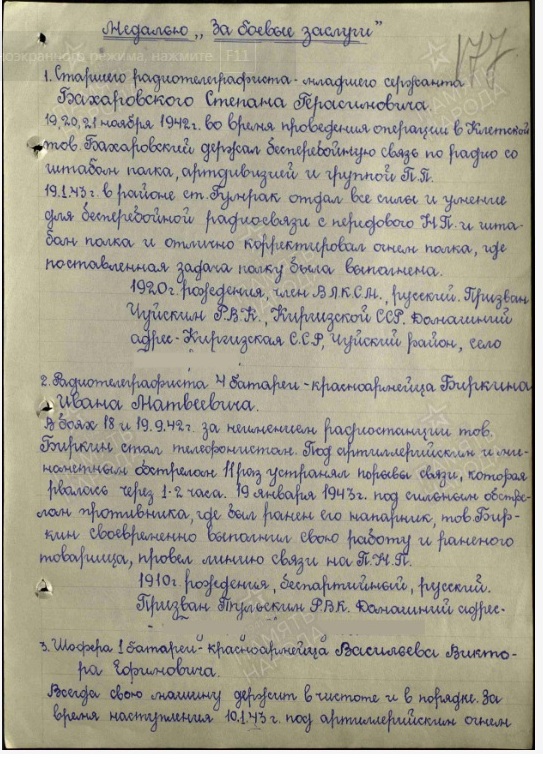 Медалью „За боевые заслуги”
177
1. Старшего радиотелеграфиста - младшего сержанта
Бахаровского Степана Герасимовича.
19, 20, 21 ноября 1942г. во время проведения операции в Клетской
тов. Бахаровский держал бесперебойную связь по радио со
штабом полка, артдивизией и группой П.П.
19.1.43г. в районе ст. Гумрак отдал все силы и умение
для бесперебойной радиосвязи с передового Н.П. и шта-
бом полка и отлично корректировал огнем полка, где
поставленная задача полку была выполнена.
1920г. рождения, член ВЛКСМ., русский. Призван
Чуйским Р.В.К., Киргизской ССР. Домашний
адрес - Киргизская С.С.Р, Чуйский район, село
2. Радиотелеграфиста 4 батареи - красноармейца Биркина
Ивана Матвеевича.
В боях 18 и 19.9.42г. за неимением радиостанции тов.
Биркин стал телефонистом. Под артиллерийским и ми-
нометным обстрелом 11 раз устранял порывы связи, которая
рвалась через 1-2 часа. 19 января 1943г. под сильным обстре-
лом противника, где был ранен его напарник, тов. Бир-
кин своевременно выполнил свою работу и раненого
товарища, провел линию связи на П.Н.П.
1910г. рождения, беспартийный, русский.
Призван Тульским РВК. Домашний адрес-
3. Шофера 1 батареи - красноармейца Васильева Викто-
ра Ефимовича.
Всегда свою машину держит в чистоте и в порядке. За
время наступления 10.1.43г. под артиллерийским огнем